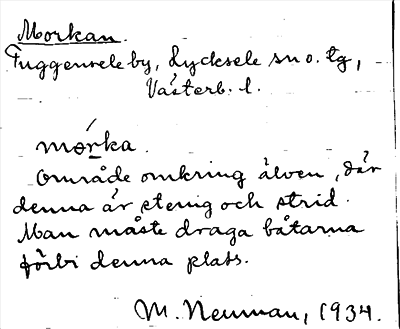 Morkan.
Tuggensele by, Lycksele sn o. tg,
Västerb. l.
mo̱ŕka.
Område omkring älven, där
denna är stenig och strid.
Man måste draga båtarna
förbi denna plats.
M. Neuman, 1934.